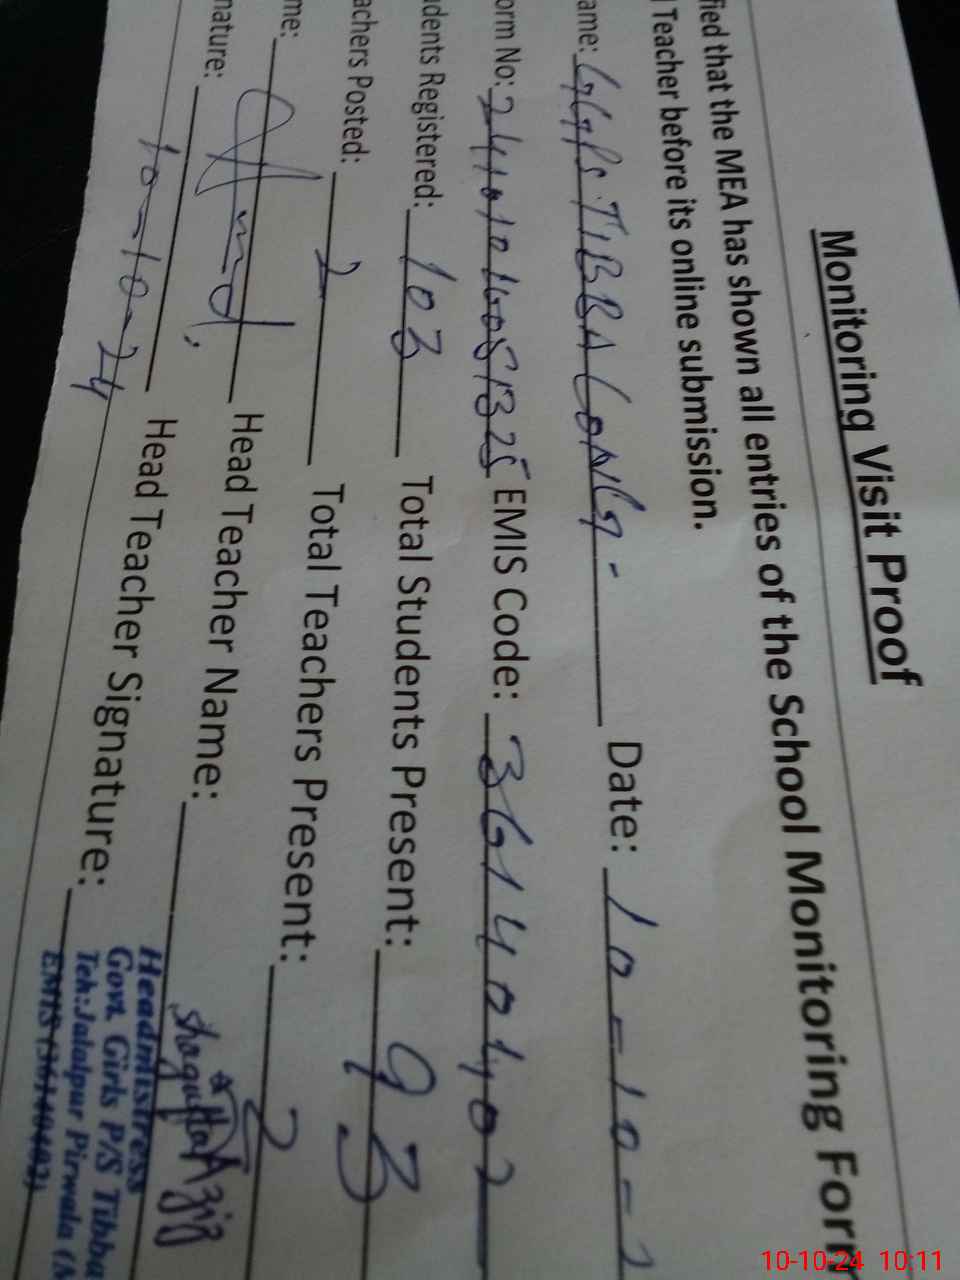 Monitoring Visit Proof
fied that the MEA has shown all entries of the School Monitoring Form
Teacher before its online submission.
ame: GGPS. TIBBA LONG - Date: 10-10-2
orm No: EMIS Code: 36140402
dents Registered: 103 Total Students Present: 93
achers Posted: 2 Total Teachers Present: 2
me: Head Teacher Name: Shagufta Aziz
nature: Head Teacher Signature:
10-10-24
Headmistress
Govt. Girls P/S Tibba
Teh:Jalalpur Pirwala (M
EMIS (36140402)
10-10-24 10:11